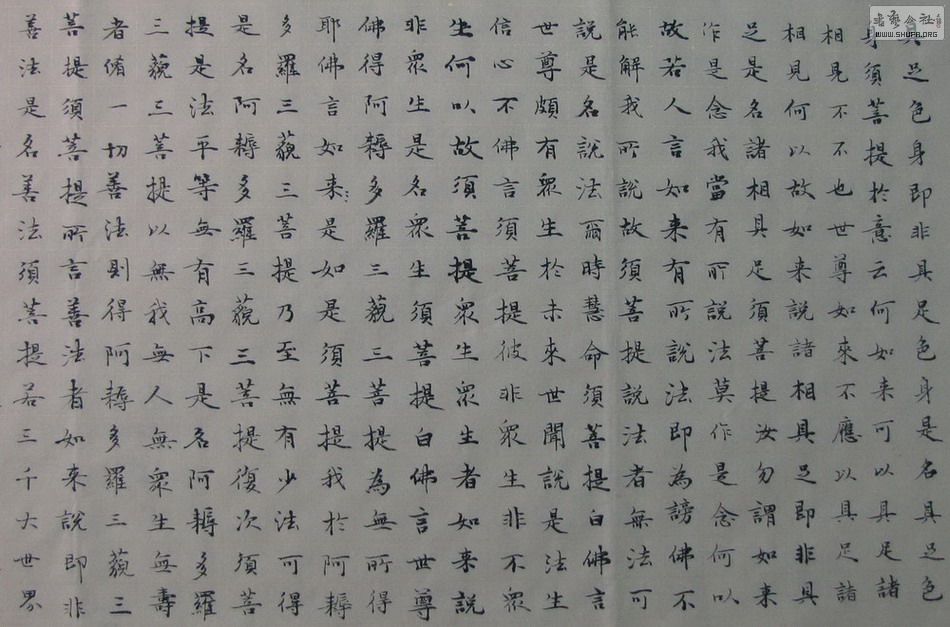 具足色身即非具足色身是名具足色
身須菩提於意云何如来可以具足諸
相見不不也世尊如來不應以具足諸
相見何以故如来說諸相具足即非具
足是名諸相具足須菩提汝勿謂如来
作是念我當有所說法莫作是念何以
故若人言如来有所說法即為謗佛不
能解我所說故須菩提說法者無法可
說是名說法爾時慧命須菩提白佛言
世尊頗有衆生於未來世聞說是法生
信心不佛言須菩提彼非衆生非不衆
生何以故須菩提衆生衆生者如来說
非衆生是名衆生須菩提白佛言世尊
佛得阿耨多羅三藐三菩提為無所得
耶佛言如来是如是須菩提我於阿耨
多羅三藐三菩提乃至無有少法可得
是名阿耨多羅三藐三菩提復次須菩
提是法平等無有高下是名阿耨多羅
三藐三菩提以無我無人無衆生無壽
者俻一切善法則得阿耨多羅三藐三
菩提須菩提所言善法者如来說即非
善法是名善法須菩提若三千大世界
書藝公社
WWW.SHUFA.ORG